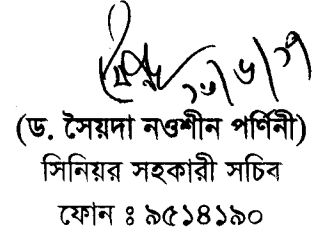 ১৬/৬/১৭
(ড. সৈয়দা নওশীন পর্ণিনী)
সিনিয়র সহকারী সচিব
ফোন ঃ ৯৫১৪১৯০